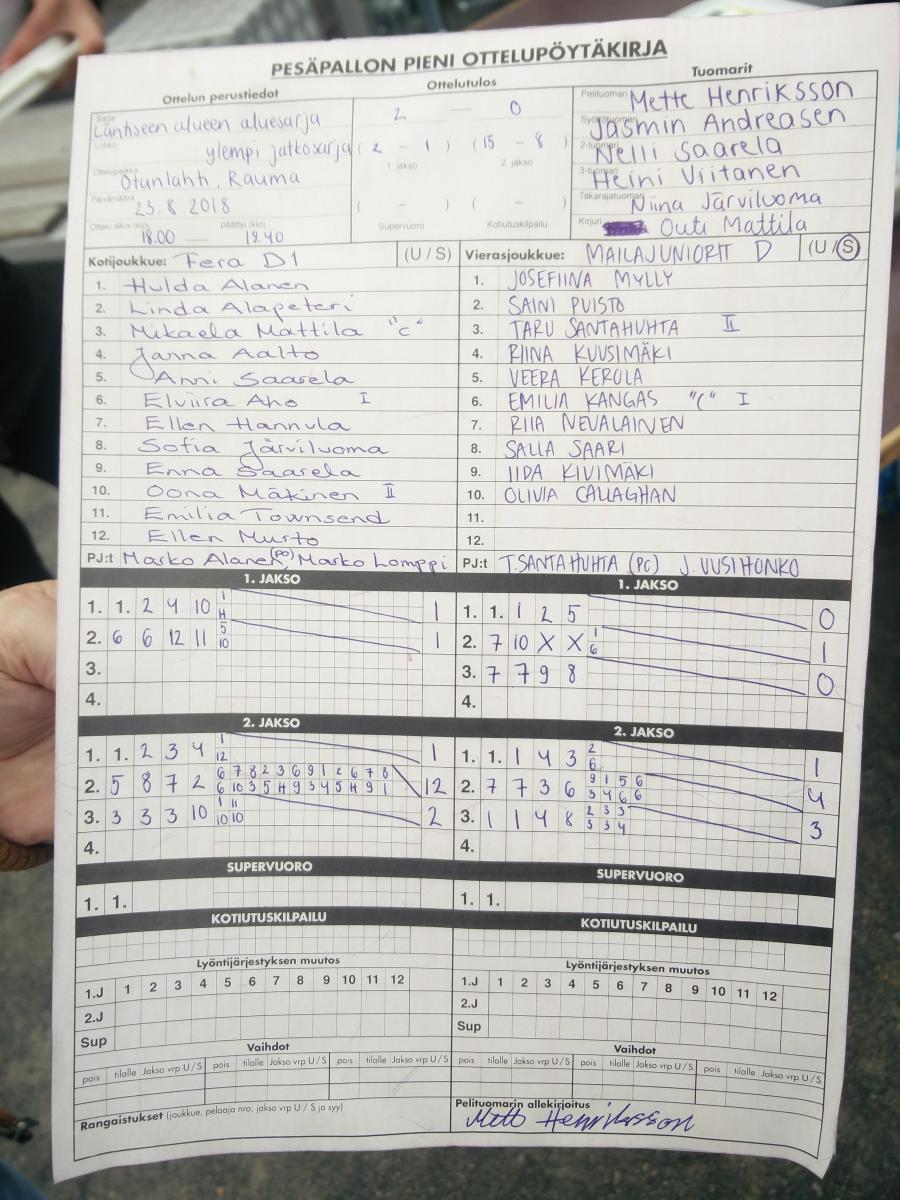 PESÄPALLON PIENI OTTELUPÖYTÄKIRJA
Ottelun perustiedot
Sarja
Läntiseen alueen aluesarja
Lohko
ylempi jatkosarja
Ottelupaikka
Otanlahti, Rauma
Päivämäärä
23.8 2018
Ottelu alkoi (klo) päättyi (klo)
18.00 — 19.40
Ottelutulos
2 — 0
(2 - 1) (15 - 8)
1 jakso 2 jakso
( - ) ( - )
Supervuoro Kotiutuskilpailu
Tuomarit
Pelituomari Mette Henriksson
Syöttötuomari Jasmin Andreasen
2-tuomari Nelli Saarela
3-tuomari Heini Viitanen
Takarajatuomari Niina Järviluoma
Kirjuri Outi Mattila
Kotijoukkue: Fera D1 (U / S)
1. Hulda Alanen
2. Linda Alapeteri
3. Mikaela Mattila "C"
4. Janna Aalto
5. Anni Saarela
6. Elviira Aho I
7. Ellen Hannula
8. Sofia Järviluoma
9. Enna Saarela
10. Oona Mäkinen II
11. Emilia Townsend
12. Ellen Murto
PJ:t Marko Alanen (PO), Marko Lomppi
Vierasjoukkue: MAILAJUNIORIT D (U / S)
1. JOSEFIINA MYLLY
2. SAINI PUISTO
3. TARU SANTAHUHTA II
4. RIINA KUUSIMÄKI
5. VEERA KEROLA
6. EMILIA KANGAS "C" I
7. RIIA NEVALAINEN
8. SALLA SAARI
9. IIDA KIVIMÄKI
10. OLIVIA CALLAGHAN
11.
12.
PJ:t T.SANTAHUHTA (PC) J. UUSIHONKO
1. JAKSO
1. 1. 2 4 10 1 1
H
2. 6 6 12 11 5 1
10
3.
4.
1. JAKSO
1. 1. 1 2 5 0
2. 7 10 X X 1 1
6
3. 7 7 9 8 0
4.
2. JAKSO
1. 1. 2 3 4 1 1
12
2. 5 8 7 2 6 7 8 2 3 6 9 1 2 6 7 8 12
6 10 3 5 H 9 3 4 5 H 9 1
3. 3 3 3 10 1 11 2
10 10
4.
2. JAKSO
1. 1. 1 4 3 2 1
6
2. 7 7 3 6 9 1 5 6 4
3 4 6 6
3. 1 1 4 8 2 3 3 3
3 3 4
4.
SUPERVUORO
1. 1.
SUPERVUORO
1. 1.
KOTIUTUSKILPAILU
KOTIUTUSKILPAILU
Lyöntijärjestyksen muutos
1.J 1 2 3 4 5 6 7 8 9 10 11 12
2.J
Sup
Lyöntijärjestyksen muutos
1.J 1 2 3 4 5 6 7 8 9 10 11 12
2.J
Sup
Vaihdot
pois tilalle Jakso vrp U / S pois tilalle Jakso vrp U / S pois tilalle Jakso vrp U / S
Vaihdot
pois tilalle Jakso vrp U / S pois tilalle Jakso vrp U / S pois tilalle Jakso vrp U / S
Rangaistukset (joukkue, pelaaja nro, jakso vrp U / S ja syy)
Pelituomarin allekirjoitus
Mette Henriksson